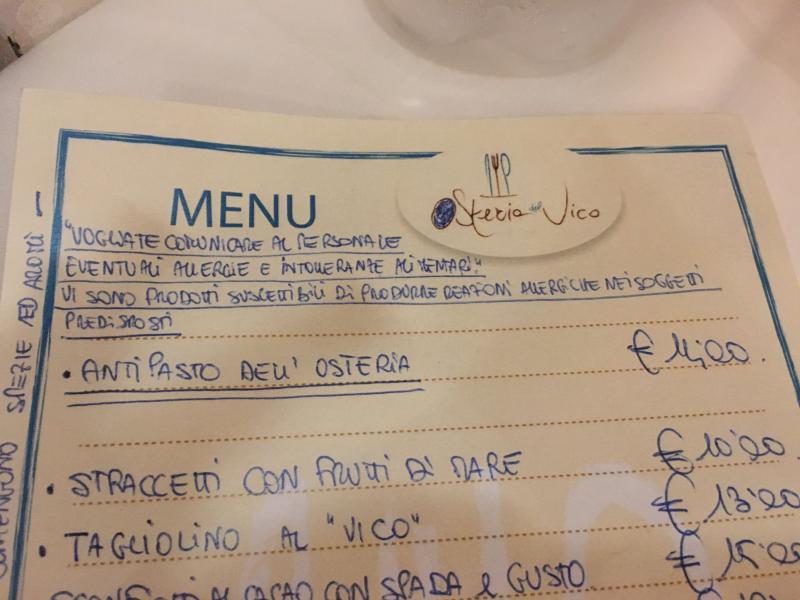 Osteria del Vico
MENU
"VOGLIATE COMUNICARE AL PERSONALE
EVENTUALI ALLERGIE E INTOLLERANZE ALIMENTARI."
VI SONO PRODOTTI SUSCETTIBILI DI PRODURRE REAZIONI ALLERGICHE NEI SOGGETTI
PREDISPOSTI
• ANTIPASTO DELL' OSTERIA € 14,00.
• STRACCETTI CON FRUTTI DI MARE € 10,00
• TAGLIOLINO AL "VICO" € 13,00
AL CACAO CON SPADA e GUSTO € 15,00
CONTENGONO SPEZIE ED AROMI -